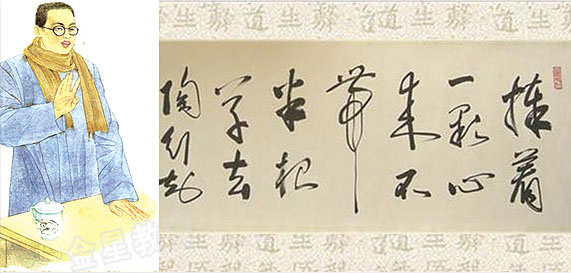 捧着
一颗心
来不
带
半根
草去
陶行知
金星教